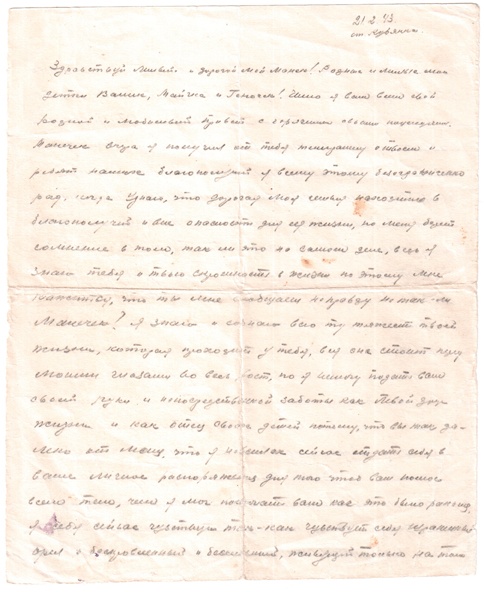 21.2.43.
ст. Кувянки.
Здравствуй Милый и дорогой мой Манек! Родные и милые мои
детки Валик, Майичка и Геночка! Шлю я вам всем свой
родной и любимый привет с горячими своими поцелуями.
Манечек вчера я получил от тебя
благополучии я всему этому безгранично
рад, когда узнал, что дорогая моя семья находится в
благополучии и вне опасности для ея жизни, но меня берет
сомнение в том, так ли это на самом деле, ведь я
знаю тебя и твою в жизни по этому мне
кажется, что ты мне сообщаеш неправду не так ли
Манечек? Я знаю и сознаю всю ту тяжесть твоей
жизни, которая проходит у тебя, вся она стоит перед
моими глазами во весь рост, но я немогу подать вам
своей руки и непосредственной заботы как твой друг
жизни и как отец своих детей потому, что вы так да-
леко от меня, что я не сейчас отдать себя в
ваше личное распоряжение для того чтоб вам
всего того, чем я мог помогать вам как это было раньше.
Я себя сейчас чувствую так-как чувствует себя
и безсловесный и безсильный, только на то